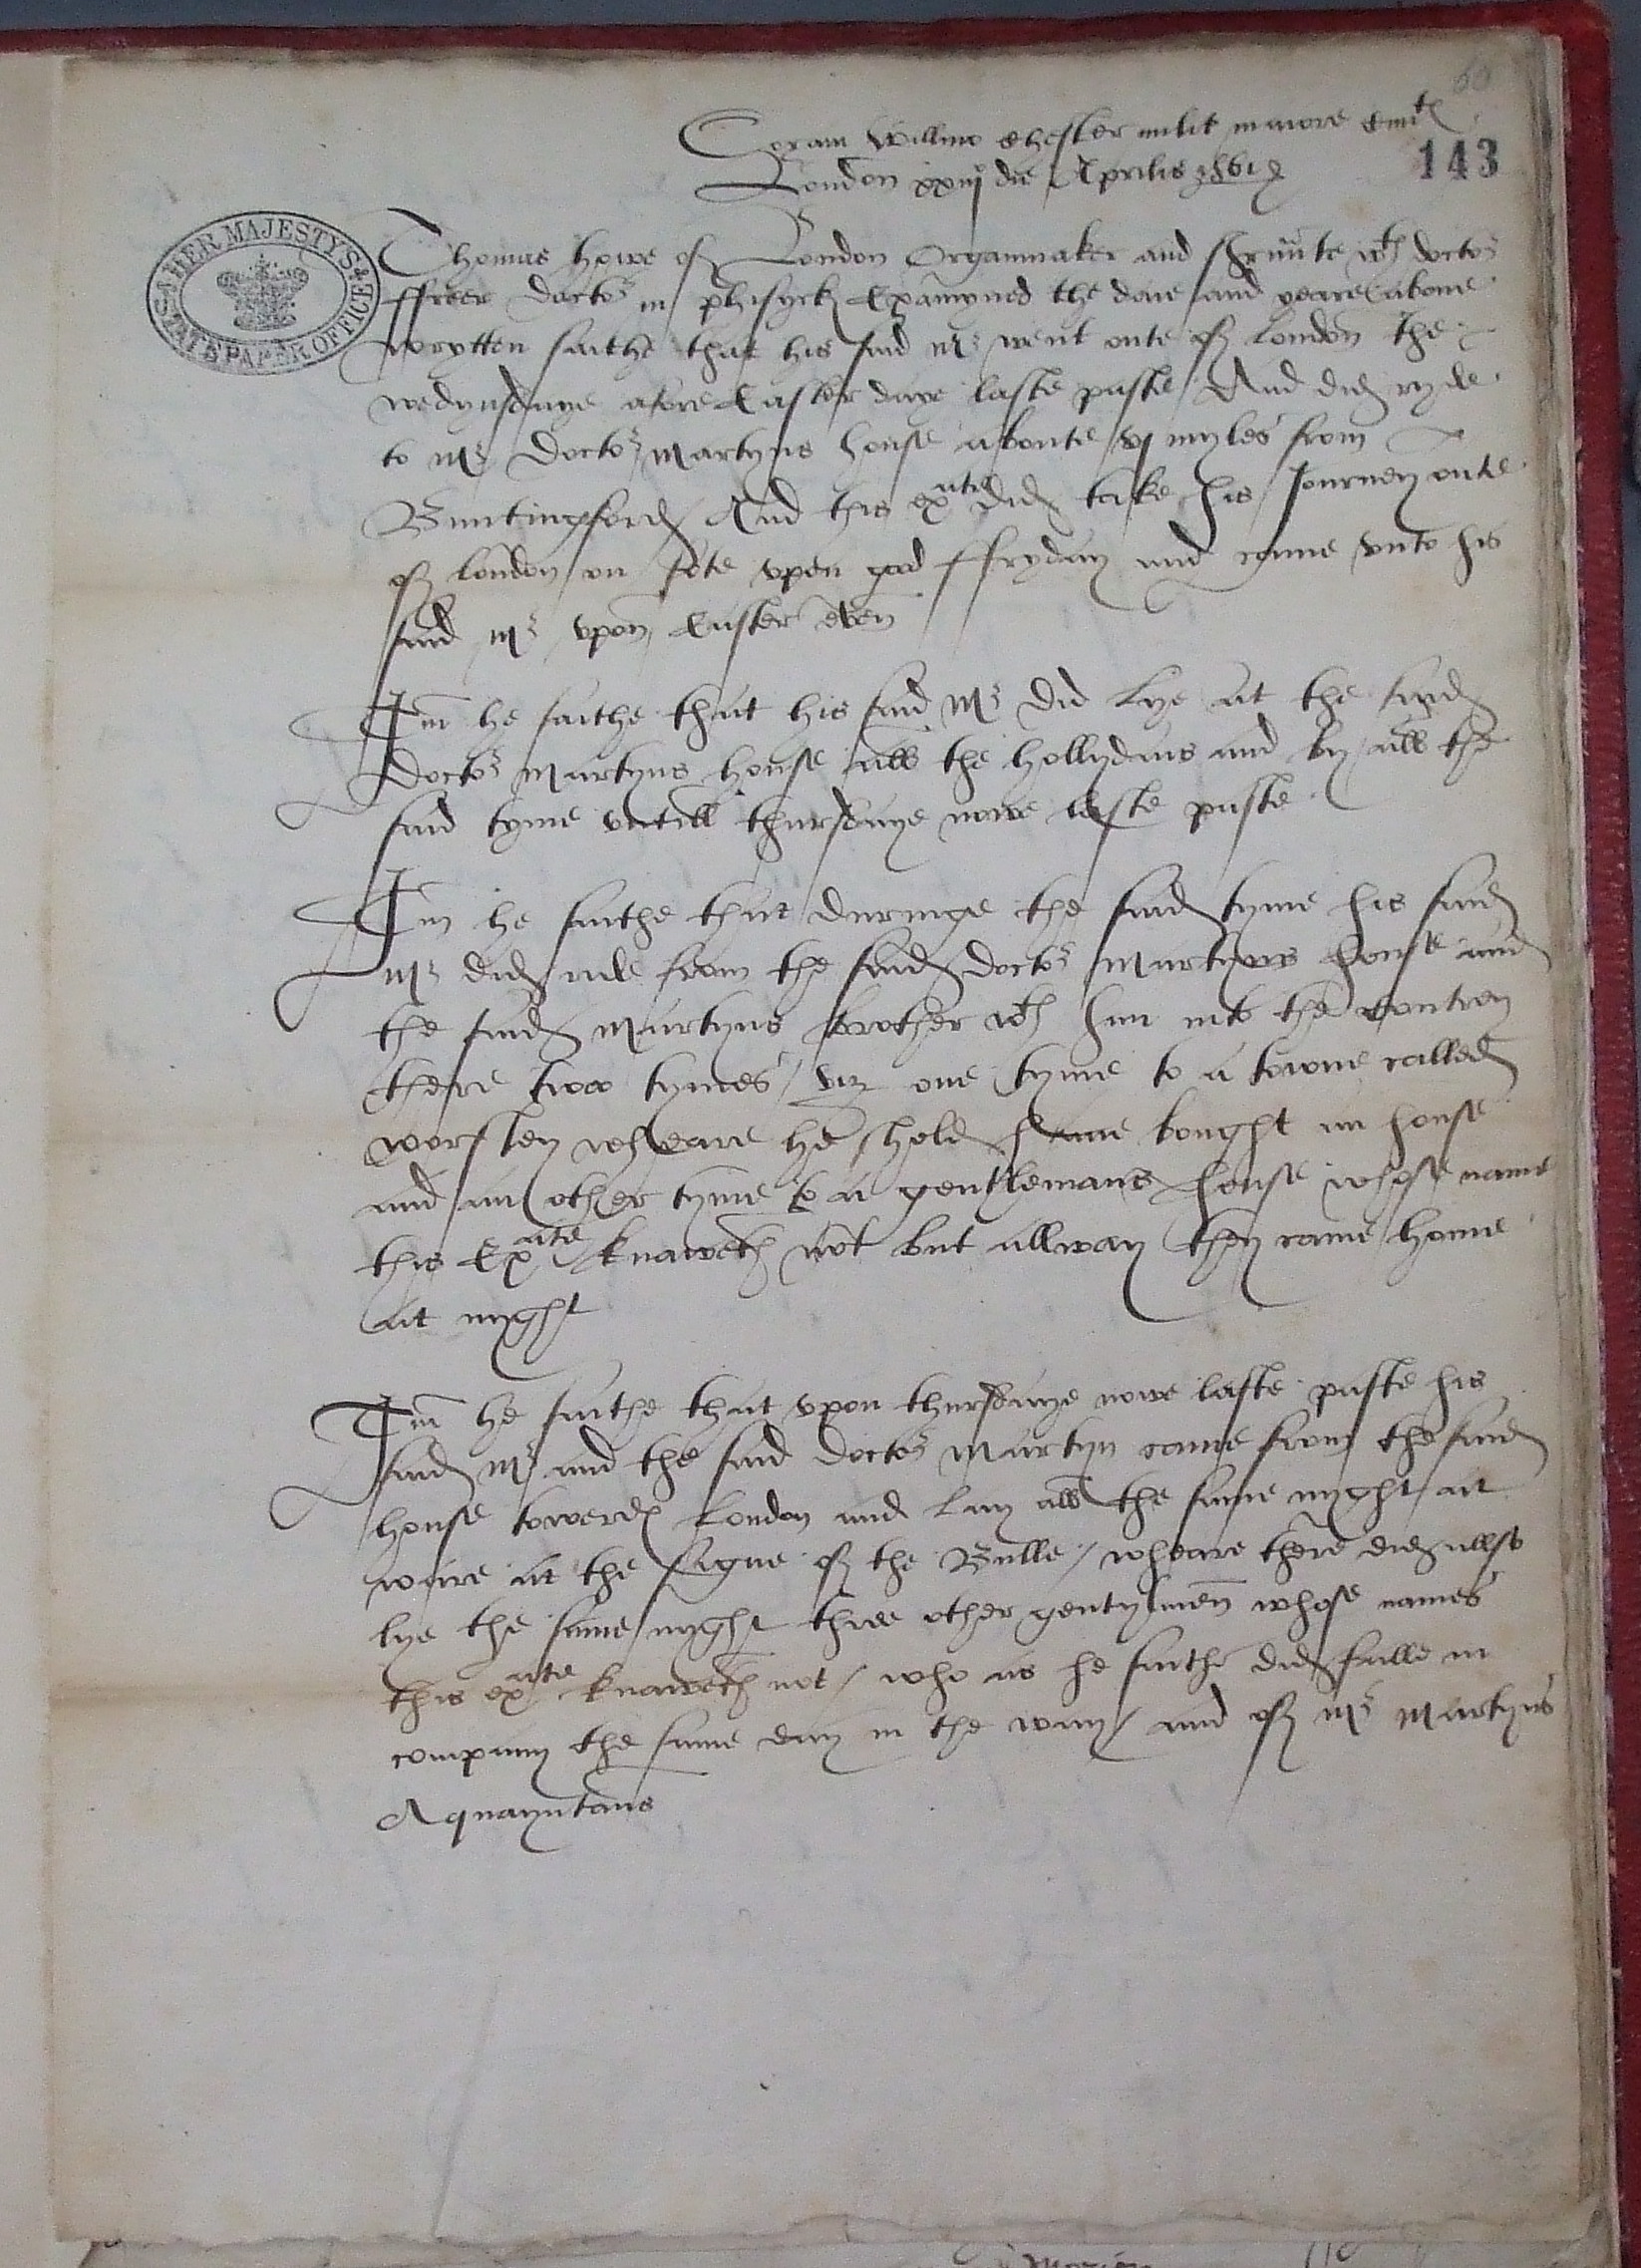 60
Coram Willmo Chester milit maiore Civitͭ
143
London xxiijº die Aprilis 1561
HER MAJESTY'S
STATE PAPER OFFICE
Thomas howe of London Organmaker and s̃ruũte wth doctor
ffreer doctor in phisyck Examyned the daie and yeare above
wrytten saithe that his said Mr went oute of London the
wedynsdaye afore Easter daye laste paste And did ryde
to Mr Doctor Martyns house aboute vj myles from
Buntingford And this exate did take his Journey oute
of london on fote vpon good ffryday and came vnto his
said Mr vpon Easter Even
Itm he saithe that his said Mr did lye at the said
Doctor Martyns house all the hollydais and by all the
said tyme vntill thursdaye nowe laste paste
Itm he saithe that duringe the said tyme his said
Mr did ride from the said doctor Martyns house and
the said Martyns brother wth him into the contrey
there two tymes / viz one tyme to a towne called
worsley wheare he shold haue bought an house
and an other tyme to a gentlemans house whose name
this Exate knaweth not but allway they came home
at nyght
Itm he saithe that vpon thursdaye nowe laste paste his
said Mr and the said doctor Martyn came from the said
house towerds London and lay all the same nyght at
ware at the signe of the Bulle / wheare there did allso
lye the same nyght three other gentylmen whose names
this exate knaweth not / who as he saithe did falle in
company the same day in the way / and of Mr Martyns
Aquayntans